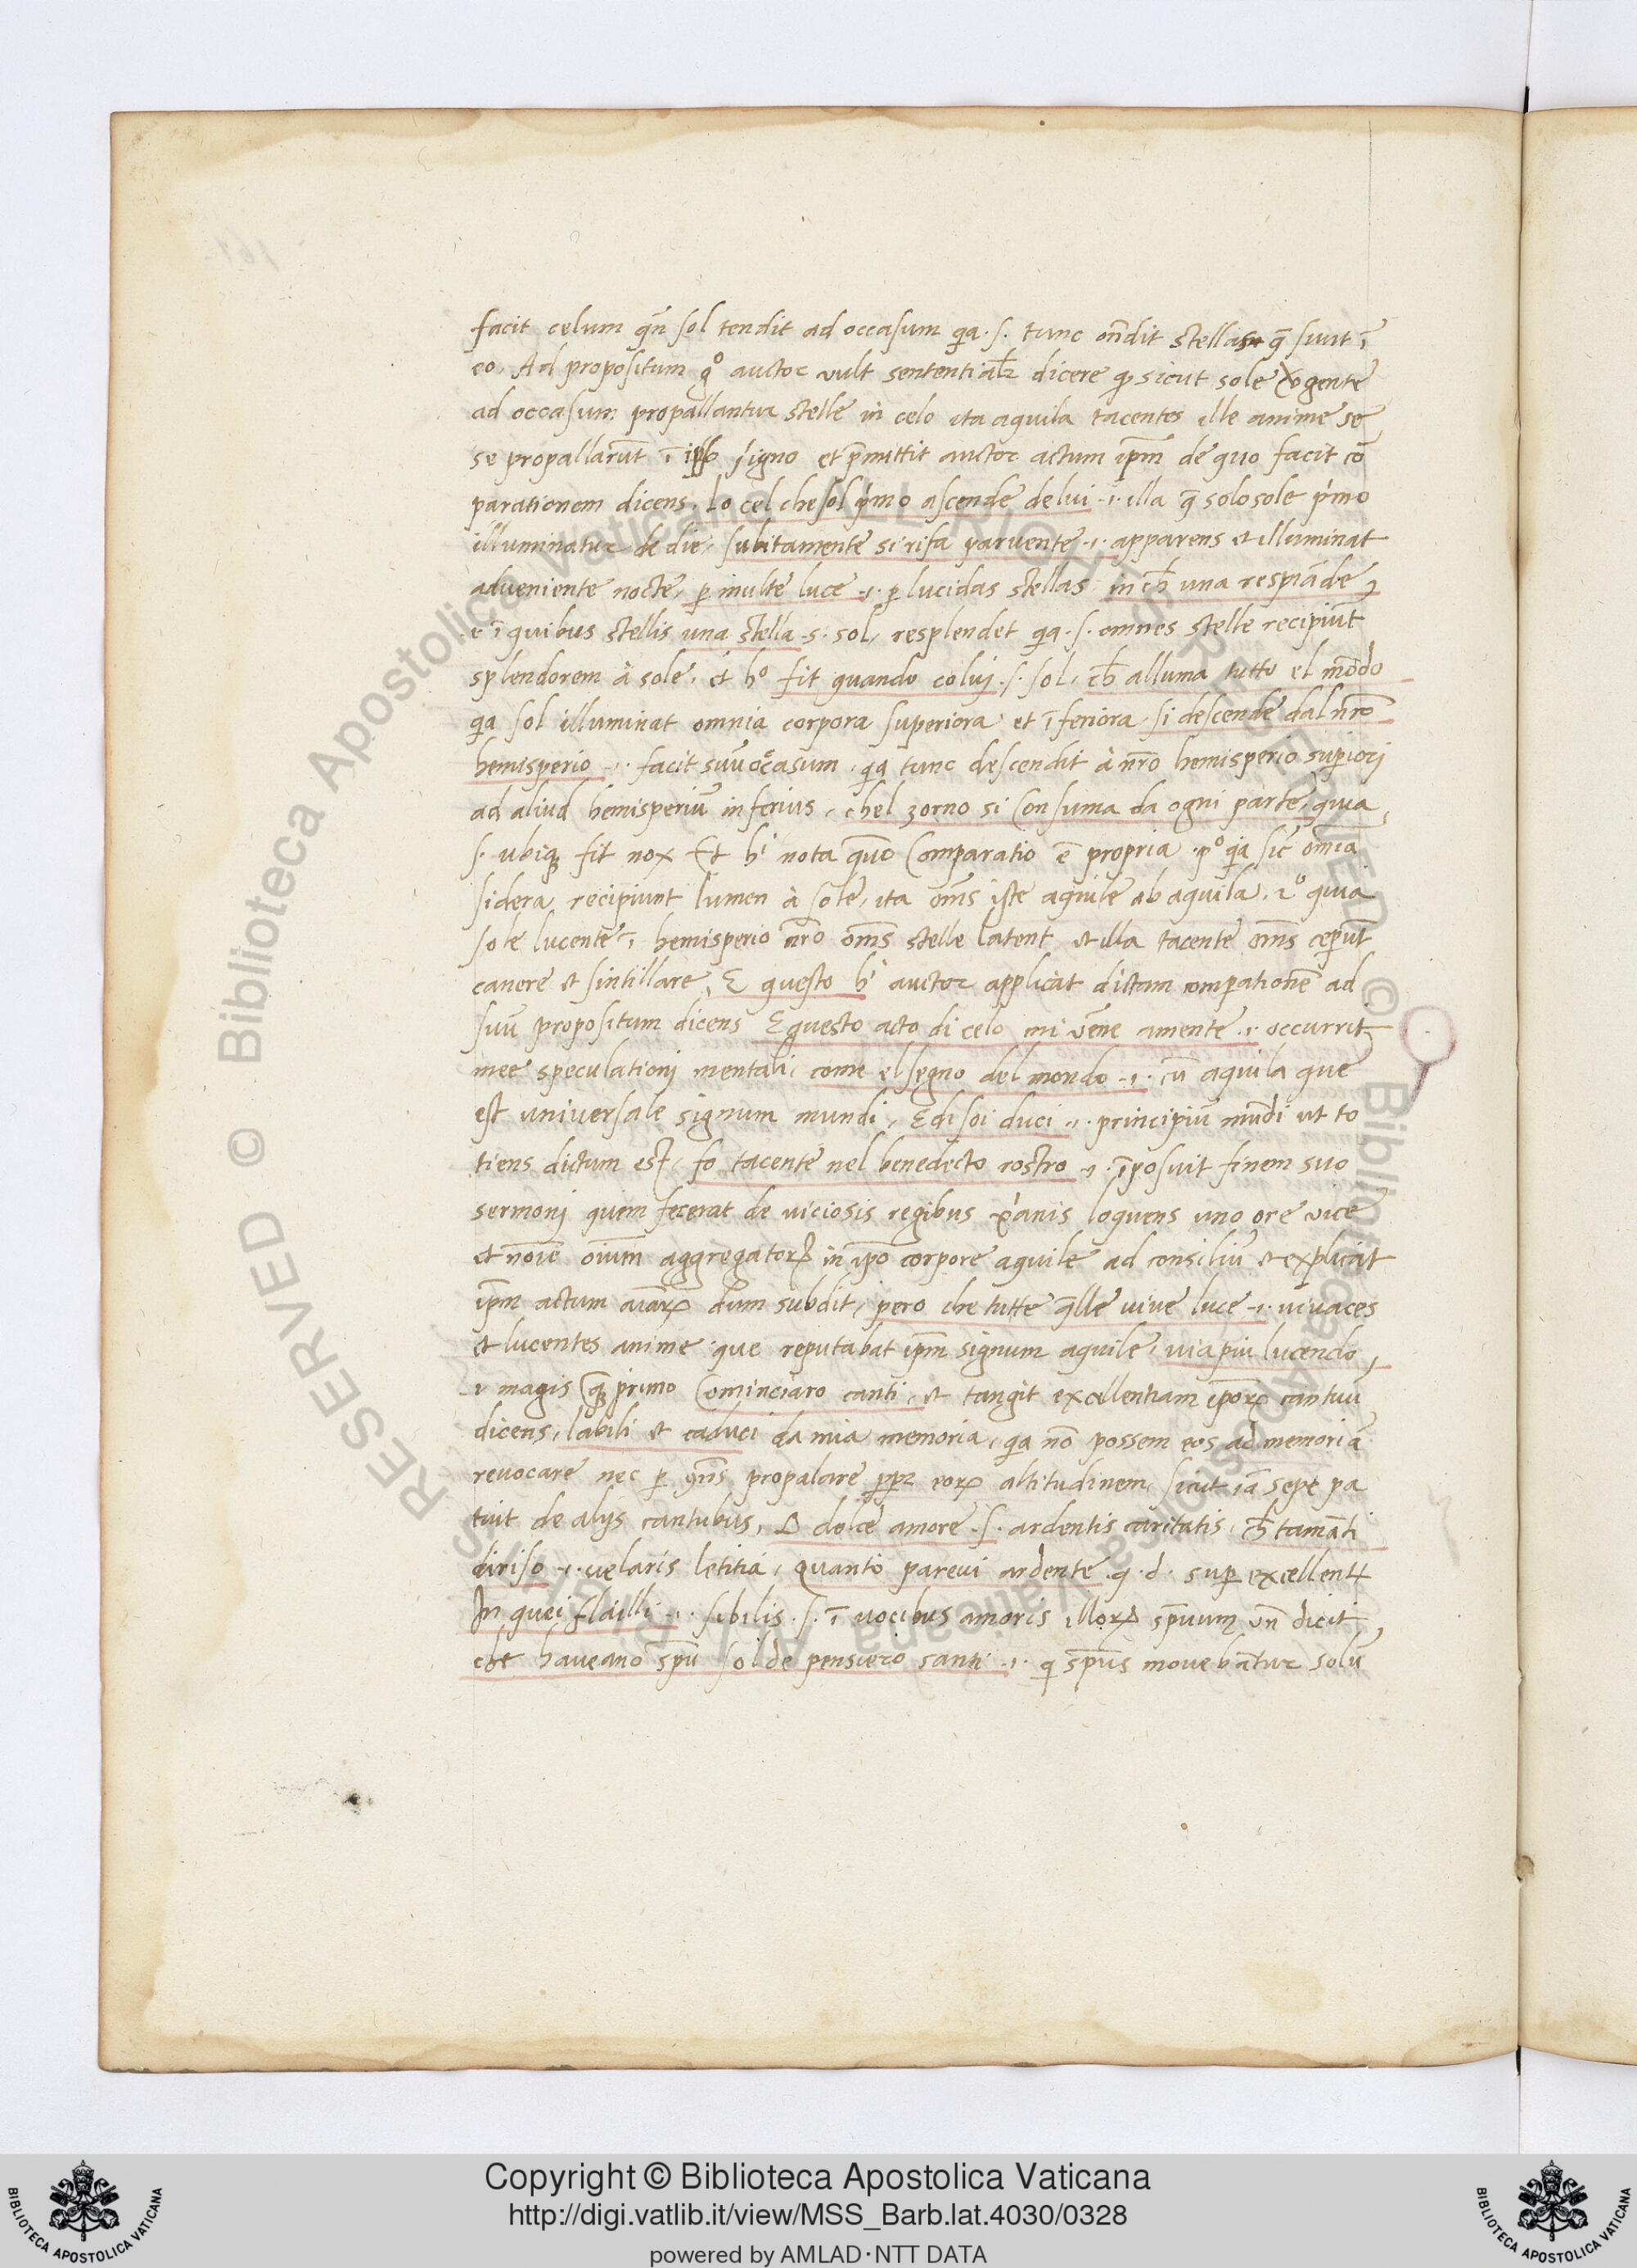 facit celum qn̄ sol tendit ad occasum q̄a .s. tunc on̄dit stellas q̄ sunt ī
eo. Ad propositum gͦ auctor vult sententialr̄ dicere ꝙ sicut sole vogente
ad occasum propallantur stelle in celo ita aquila tacentes ille anime se
se propallarūt ī signo et p̄mittit auctor actum ip̄m de quo facit cō
parationem dicens. Lo cel che sol p̓mo ascende de lui .i. illa q̄ solo sole p̓mo
illuminatur de die, subitamente si rifa parvente .i. apparens et illuminat
adveniente nocte, ꝑ multe luce .i. ꝑ lucidas stellas, in cħ una respiāde,
.i. ī quibus stellis una stella .s. sol, resplendet q̄a .s. omnes stelle recipiūt
splendorem à sole, et hͦ fit quando coluj .s. sol, cħ alluma tutto el mōdo
q̄a sol illuminat omnia corpora superiora et īferiora, si descende dal nr̄o
hemisperio .i. facit suū occasum, q̄a tunc descendit à nr̄o hemisperio supiorj
ad aliud hemisperiū inferius, chel zorno si consuma da ogni parte, quia,
s. ubiqꝫ fit nox Et hͥ nota quō comparatio ē propria. pͦ q̄a sic om̄ia
sidera recipiunt lumen à sole, ita om̄s iste aquile ab aquila. 2ͦ quia
sole lucente ī hemisperio nr̄o om̄s stelle latent, et illa tacente om̄s ceperūt
canere et sintillare, E questo hͥ auctor applicat dictam comparationē ad
suū propositum dicens E questo acto di celo mi vēne amente .i. occurrit
mee speculationj mentali, come el segno del mondo .i. cū aquila que
est universale signum mundi, E di soi duci .i. principiū mūdi ut to
tiens dictum est, fo tacente nel benedecto rostro .i. īposuit finem suo
sermonj quem fecerat de viciosis regibus xp̓anis loquens uno ore vice
et noīe oīum aggregatorꝝ in ip̄o corpore aquile ad consiliū et explicat
ip̄m actum aīarꝝ dum subdit, pero che tutte q̄lle vive luce .i. vivaces
et lucentes anime que reputabat ip̄m signum aquile, via piu lucendo,
.i. magis q̄ꝫ primo cominciaro canti, et tangit excellentiam ip̄orꝝ cantuū
dicens, labili et caduci da mia memoria, q̄a nō possem eos ad memoriā
revocare nec ꝑ propalare eorꝝ altitudinem, sicut iā sepe pa
tuit de alijs cantubus, O dolce amore .s. ardentis caritatis, cħ tamāti
di riso .i. velaris letitia, quanto parevi ardente .q.d. super excellentr̄
In quei flailli .i. sibilis .s. ī vocibus amoris illorꝝ sp̄uum, un̄ dicit,
che haveano sp̄u sol de pensiero santi .i. q̄ sp̄us movebātur solū
Copyright © Biblioteca Apostolica Vaticana
http://digi.vatlib.it/view/MSS_Barb.lat.4030/0328
powered by AMLAD·NTT DATA
BIBLIOTECA APOSTOLICA VATICANA
BIBLIOTECA APOSTOLICA VATICANA